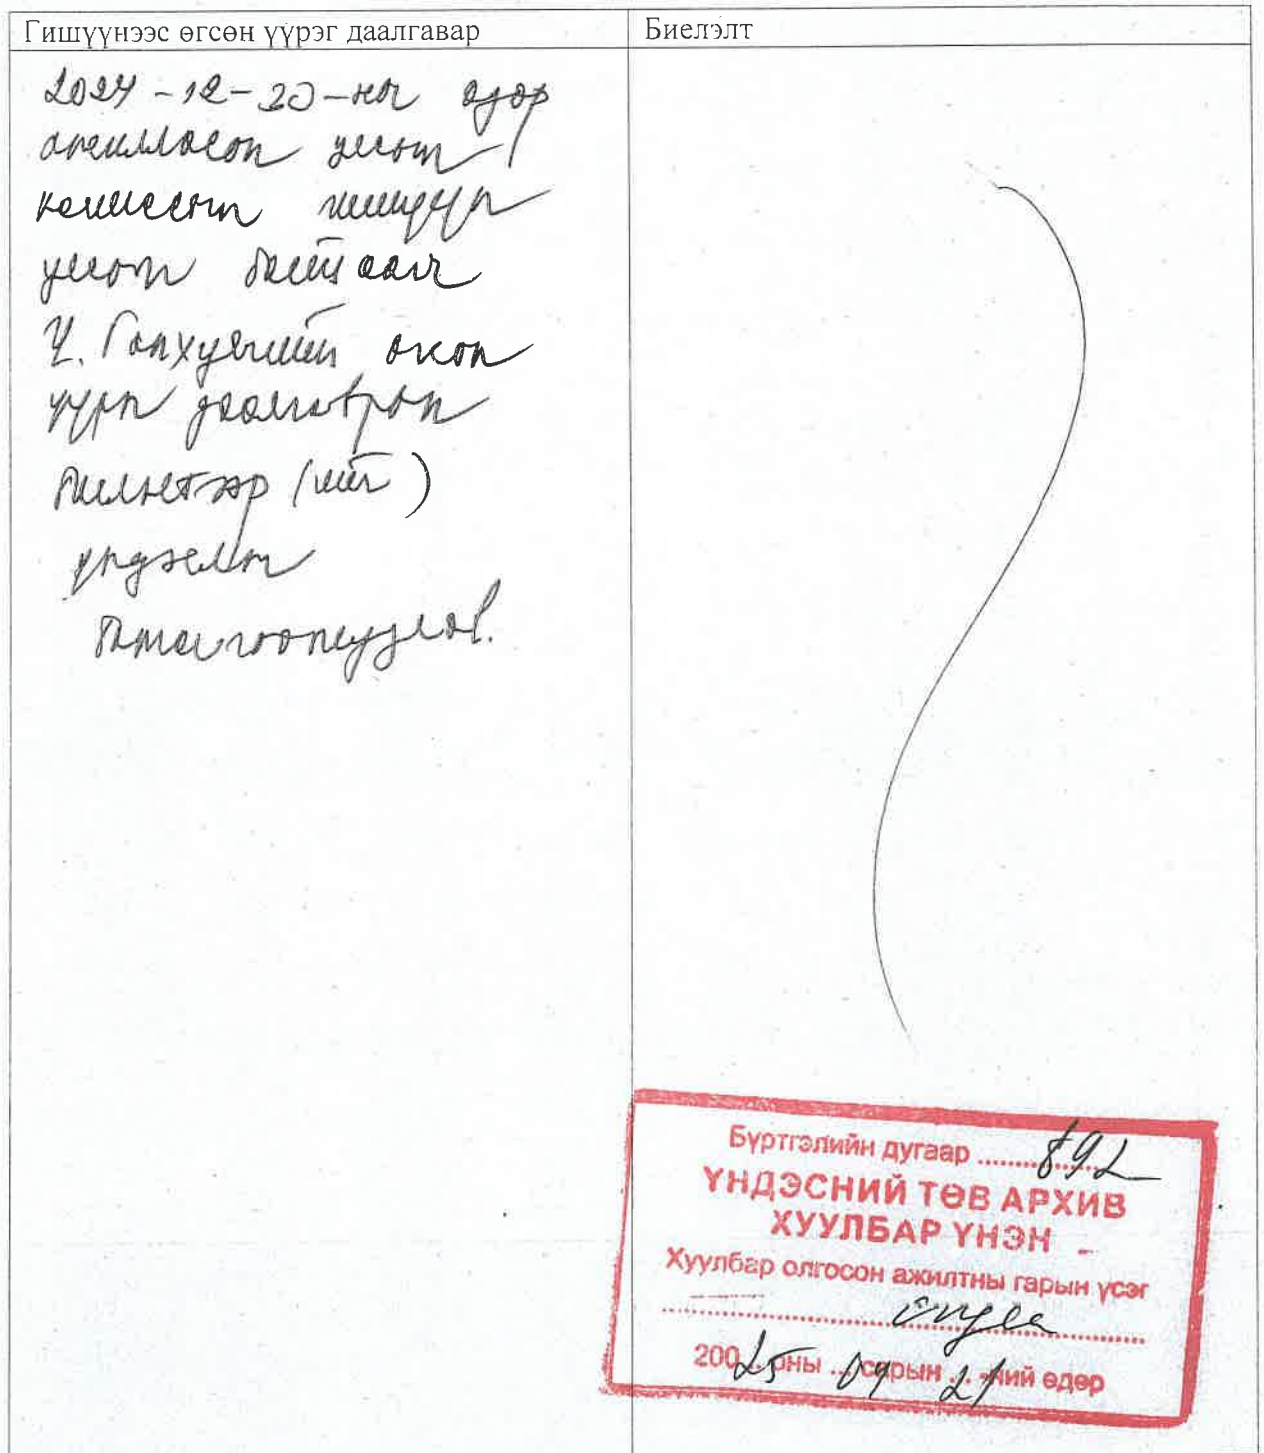 Гишүүнээс өгсөн үүрэг даалгавар
Биелэлт
2024-12-20-ны өдөр
ажилласан улсын
комиссын гишүүн
улсын байцаагч
Ганхуягийн өгсөн
үүрэг даалгаврын
биелэлтээр (ийг)
үндэслэн
баталгаажуулав.
Бүртгэлийн дугаар ........892
ҮНДЭСНИЙ ТӨВ АРХИВ
ХУУЛБАР ҮНЭН
Хуулбар олгосон ажилтны гарын үсэг
20025 оны ... 04 сарын ... 21 -ний өдөр